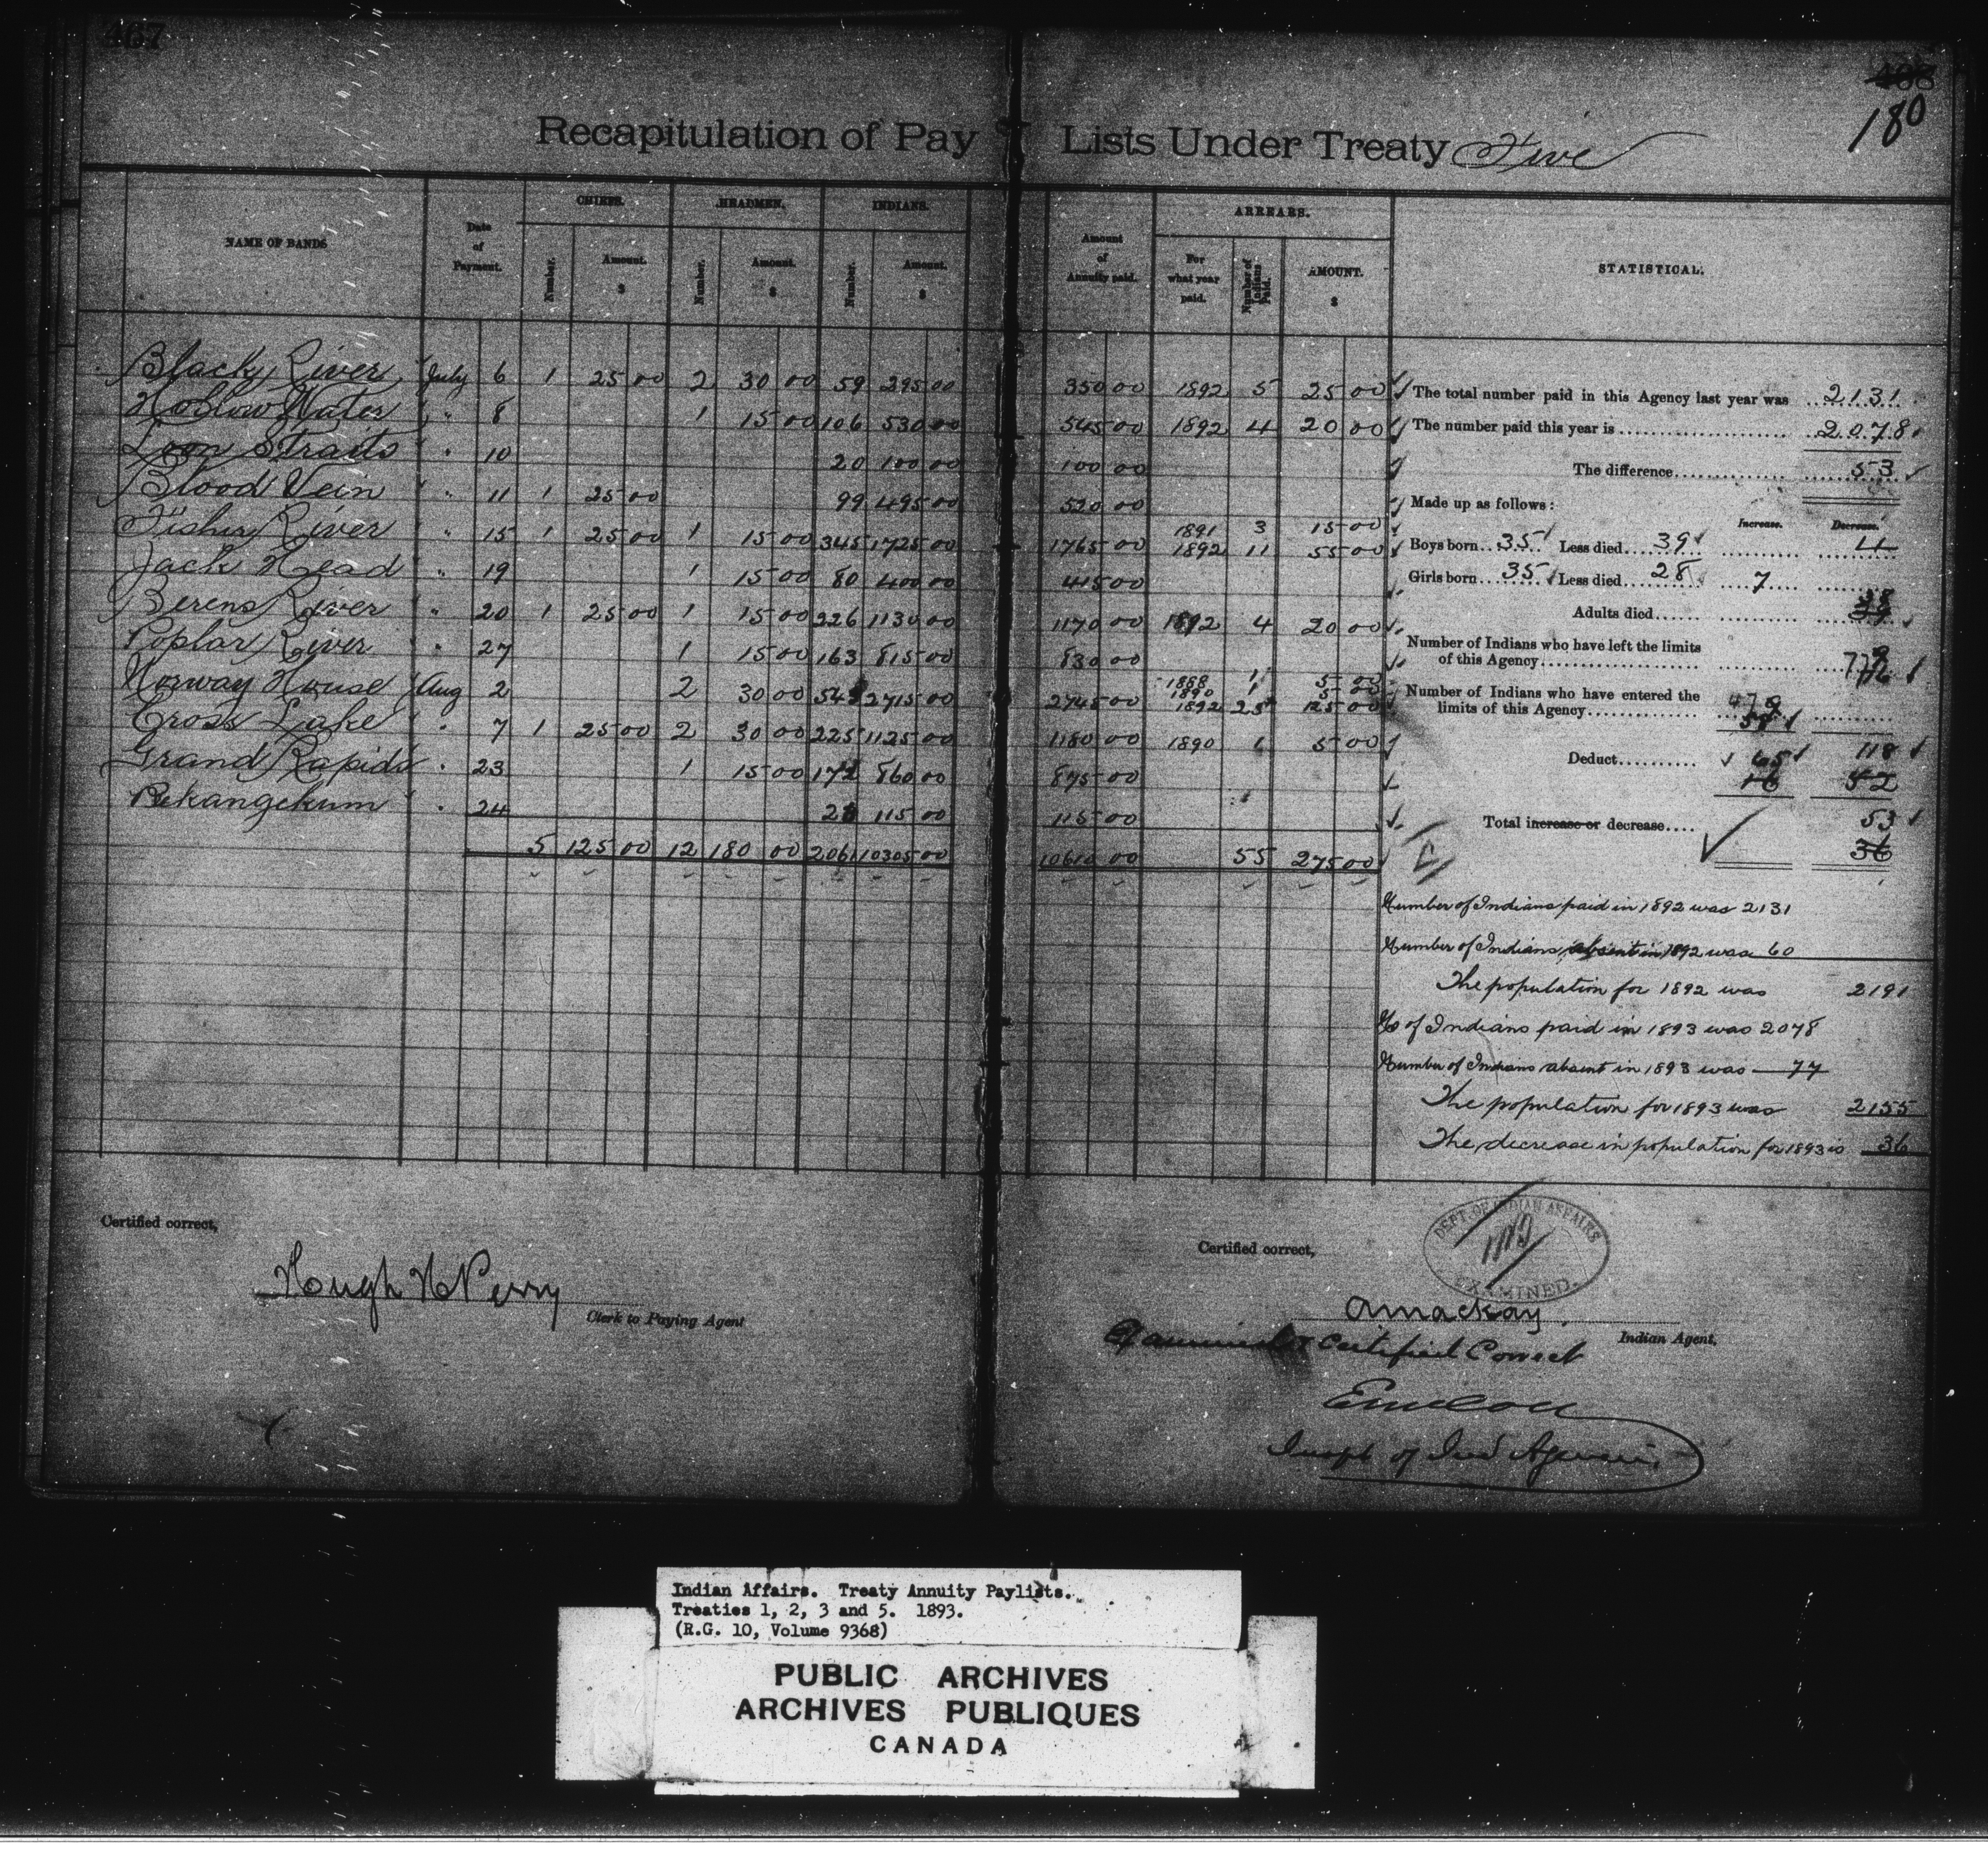 467
180
Recapitulation of Pay Lists Under Treaty Five
NAME OF BANDS
Date of Payment.
CHIEFS.
Number.
Amount. $
HEADMEN.
Number.
Amount. $
INDIANS.
Number.
Amount. $
Amount of Annuity paid.
ARREARS.
For what year paid.
Number of Indians Paid.
AMOUNT. $
STATISTICAL.
Black River July 6 1 25 00 2 30 00 59 295 00 350 00 1892 5 25 00
Hollow Water " 8 1 15 00 106 530 00 545 00 1892 4 20 00
Loon Straits " 10 20 100 00 100 00
Blood Vein " 11 1 25 00 99 495 00 520 00
1891 3 15 00
Fisher River " 15 1 25 00 1 15 00 345 1725 00 1765 00 1892 11 55 00
Jack Head " 19 1 15 00 80 400 00 415 00
Berens River " 20 1 25 00 1 15 00 226 1130 00 1170 00 1892 4 20 00
Poplar River " 27 1 15 00 163 815 00 830 00
1888 1 5 00
1890 1 5 00
Norway House Aug 2 2 30 00 543 2715 00 2745 00 1892 25 125 00
Cross Lake " 7 1 25 00 2 30 00 225 1125 00 1180 00 1890 1 5 00
Grand Rapids " 23 1 15 00 172 860 00 875 00
Pekangekum " 24 23 115 00 115 00
5 125 00 12 180 00 2061 10305 00 10610 00 55 275 00
The total number paid in this Agency last year was 2131
The number paid this year is 2078
The difference 53
Made up as follows:
Increase. Decrease.
Boys born 35 Less died 39 4
Girls born 35 Less died 28 7
Adults died 38
Number of Indians who have left the limits
of this Agency
Number of Indians who have entered the
limits of this Agency
Deduct 65 118
16 52
Total increase or decrease 53
36
Number of Indians paid in 1892 was 2131
Number of Indians absent in 1892 was 60
The population for 1892 was 2191
No of Indians paid in 1893 was 2078
Number of Indians absent in 1893 was 77
The population for 1893 was 2155
The decrease in population for 1893 is 36
Certified correct,
Hough H Perry
Clerk to Paying Agent
Certified correct,
DEPT. OF INDIAN AFFAIRS
EXAMINED.
A Mackay.
Indian Agent.
Examined & Certified Correct
Inspt of Ind Agencies
Indian Affairs. Treaty Annuity Paylists.
Treaties 1, 2, 3 and 5. 1893.
(R.G. 10, Volume 9368)
PUBLIC ARCHIVES
ARCHIVES PUBLIQUES
CANADA